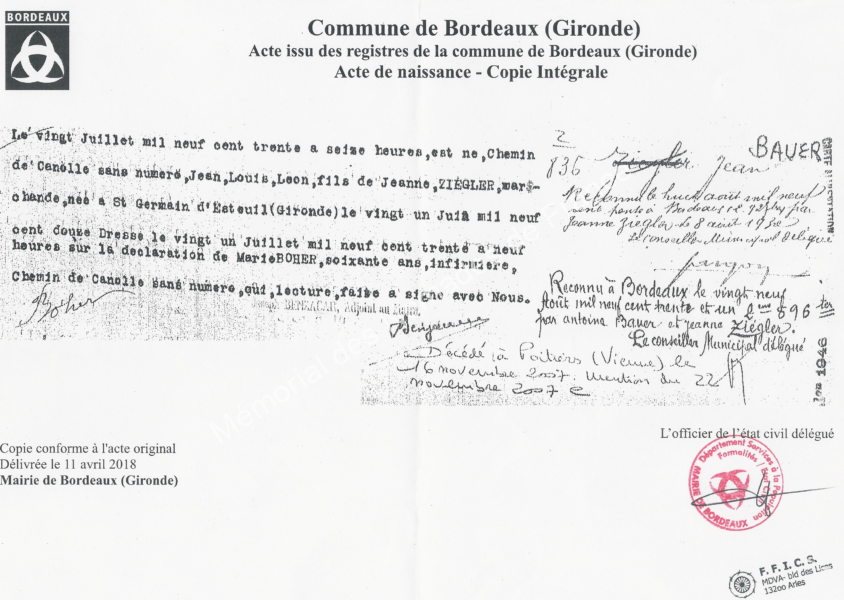 BORDEAUX
Commune de Bordeaux (Gironde)
Acte issu des registres de la commune de Bordeaux (Gironde)
Acte de naissance - Copie Intégrale
Le vingt Juillet mil neuf cent trente a seize heures, est ne, Chemin
de Canolle sans numero, Jean, Louis, Leon, fils de Jeanne, ZIÉGLER, mar-
chande, née a St Germain d'Esteuil (Gironde) le vingt un Juin mil neuf
cent douze Dresse le vingt un Juillet mil neuf cent trente a neuf
heures sur la declaration de Marie BOHER, soixante ans, infirmiere,
Chemin de Canolle sans numero, qui, lecture, faite a signe avec Nous.
Adjoint au
Boher
2
836 Ziegler Jean BAUER
Reconnu le huit août mil neuf
cent trente à Bordeaux par
Jeanne Ziegler le 8 août 1930
Le conseiller Municipal délégué
Reconnu à Bordeaux le vingt neuf
Août mil neuf cent trente et un 596 ter
par antoine Bauer et jeanne Ziégler.
Le conseiller Municipal délégué
Décédé à Poitiers (Vienne) le
16 novembre 2007. Mention du 22
novembre 2007
1946
Copie conforme à l'acte original
Délivrée le 11 avril 2018
Mairie de Bordeaux (Gironde)
L'officier de l'état civil délégué
Département Services à la Population
Formalités / Etat Civil
MAIRIE DE BORDEAUX
F.F.I.C.S.
MDVA- bld des Lices
13200 Arles